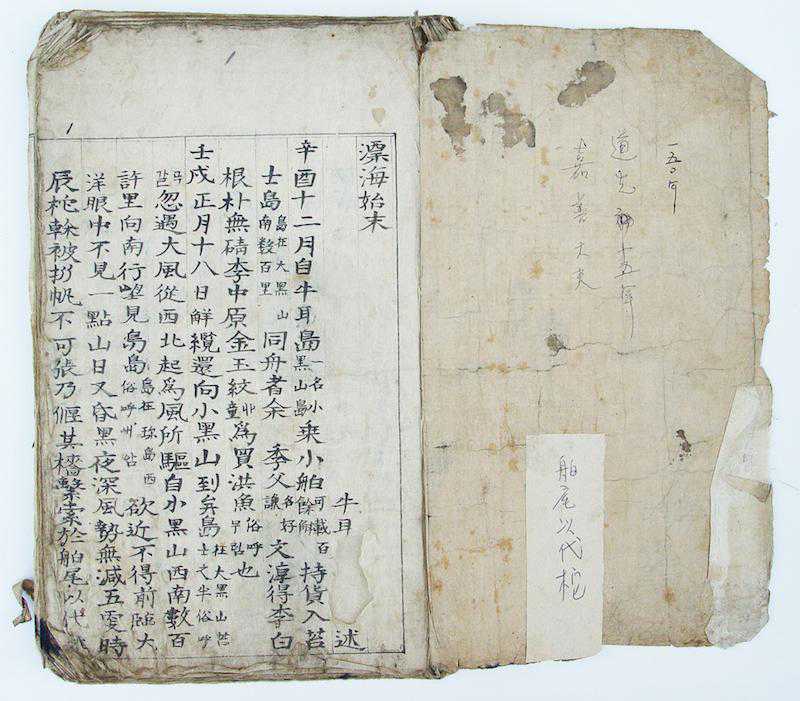 一五〇年
道光 十五年
嘉善大夫
舶尾以代柁
漂海始末
牛耳 述
辛酉十二月自牛耳島一名小黑山島乗小舶可載百餘斛持貨入苔
士島島在大黑山南數百里同舟者余 季父諱各好文淳得李白
根朴無碃李中原金玉紋丱童為買洪魚俗呼무럼也
壬戌正月十八日解纜還向小黑山到弁島在大黑山苔士之半俗呼
갈忽遇大風從西北起為風所驅自小黑山西南數百
許里向南行望見鳥島島在珍島西俗呼欲近不得前臨大
洋眼中不見一點山日又昏黑夜深風勢無減五更時
辰柁榦被折帆不可張乃偃其檣繫索於舶尾以代